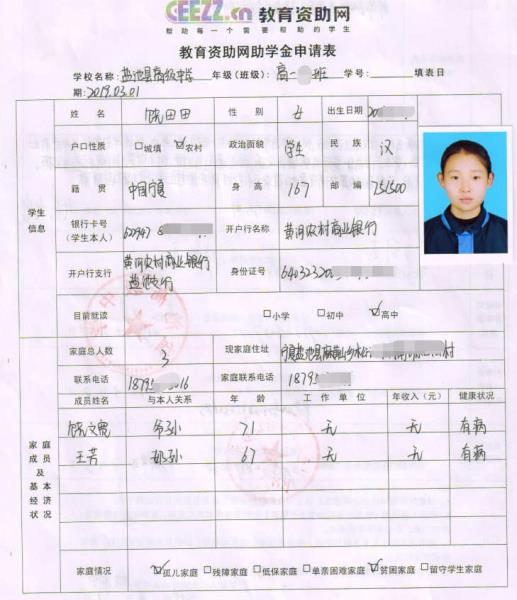 CEEZZ.cn 教育资助网
帮助每一个需要帮助的学生
教育资助网助学金申请表
学校名称:盐池县高级中学 年级(班级):高二 班 学号: 填表日
期:2019.03.01
姓名 饶田田 性别 女 出生日期 20
户口性质 □城填 ☑农村 政治面貌 学生 民族 汉
籍贯 中国宁夏 身高 167 邮编 751500
学生信息
银行卡号(学生本人) 开户行名称 黄河农村商业银行
开户行支行 黄河农村商业银行盐池支行 身份证号 640323200
目前就读 □小学 □初中 ☑高中
家庭总人数 3 现家庭住址 宁夏盐池县麻黄山乡松 村
联系电话 1879 016 家庭联系电话 1879
成员姓名 与本人关系 年龄 工作单位 年收入(元) 健康状况
饶文 爷孙 71 无 无 有病
王芳 奶孙 67 无 无 有病
家庭成员及基本经济状况
家庭情况 ☑孤儿家庭 □残障家庭 □低保家庭 □单亲困难家庭 ☑贫困家庭 □留守学生家庭